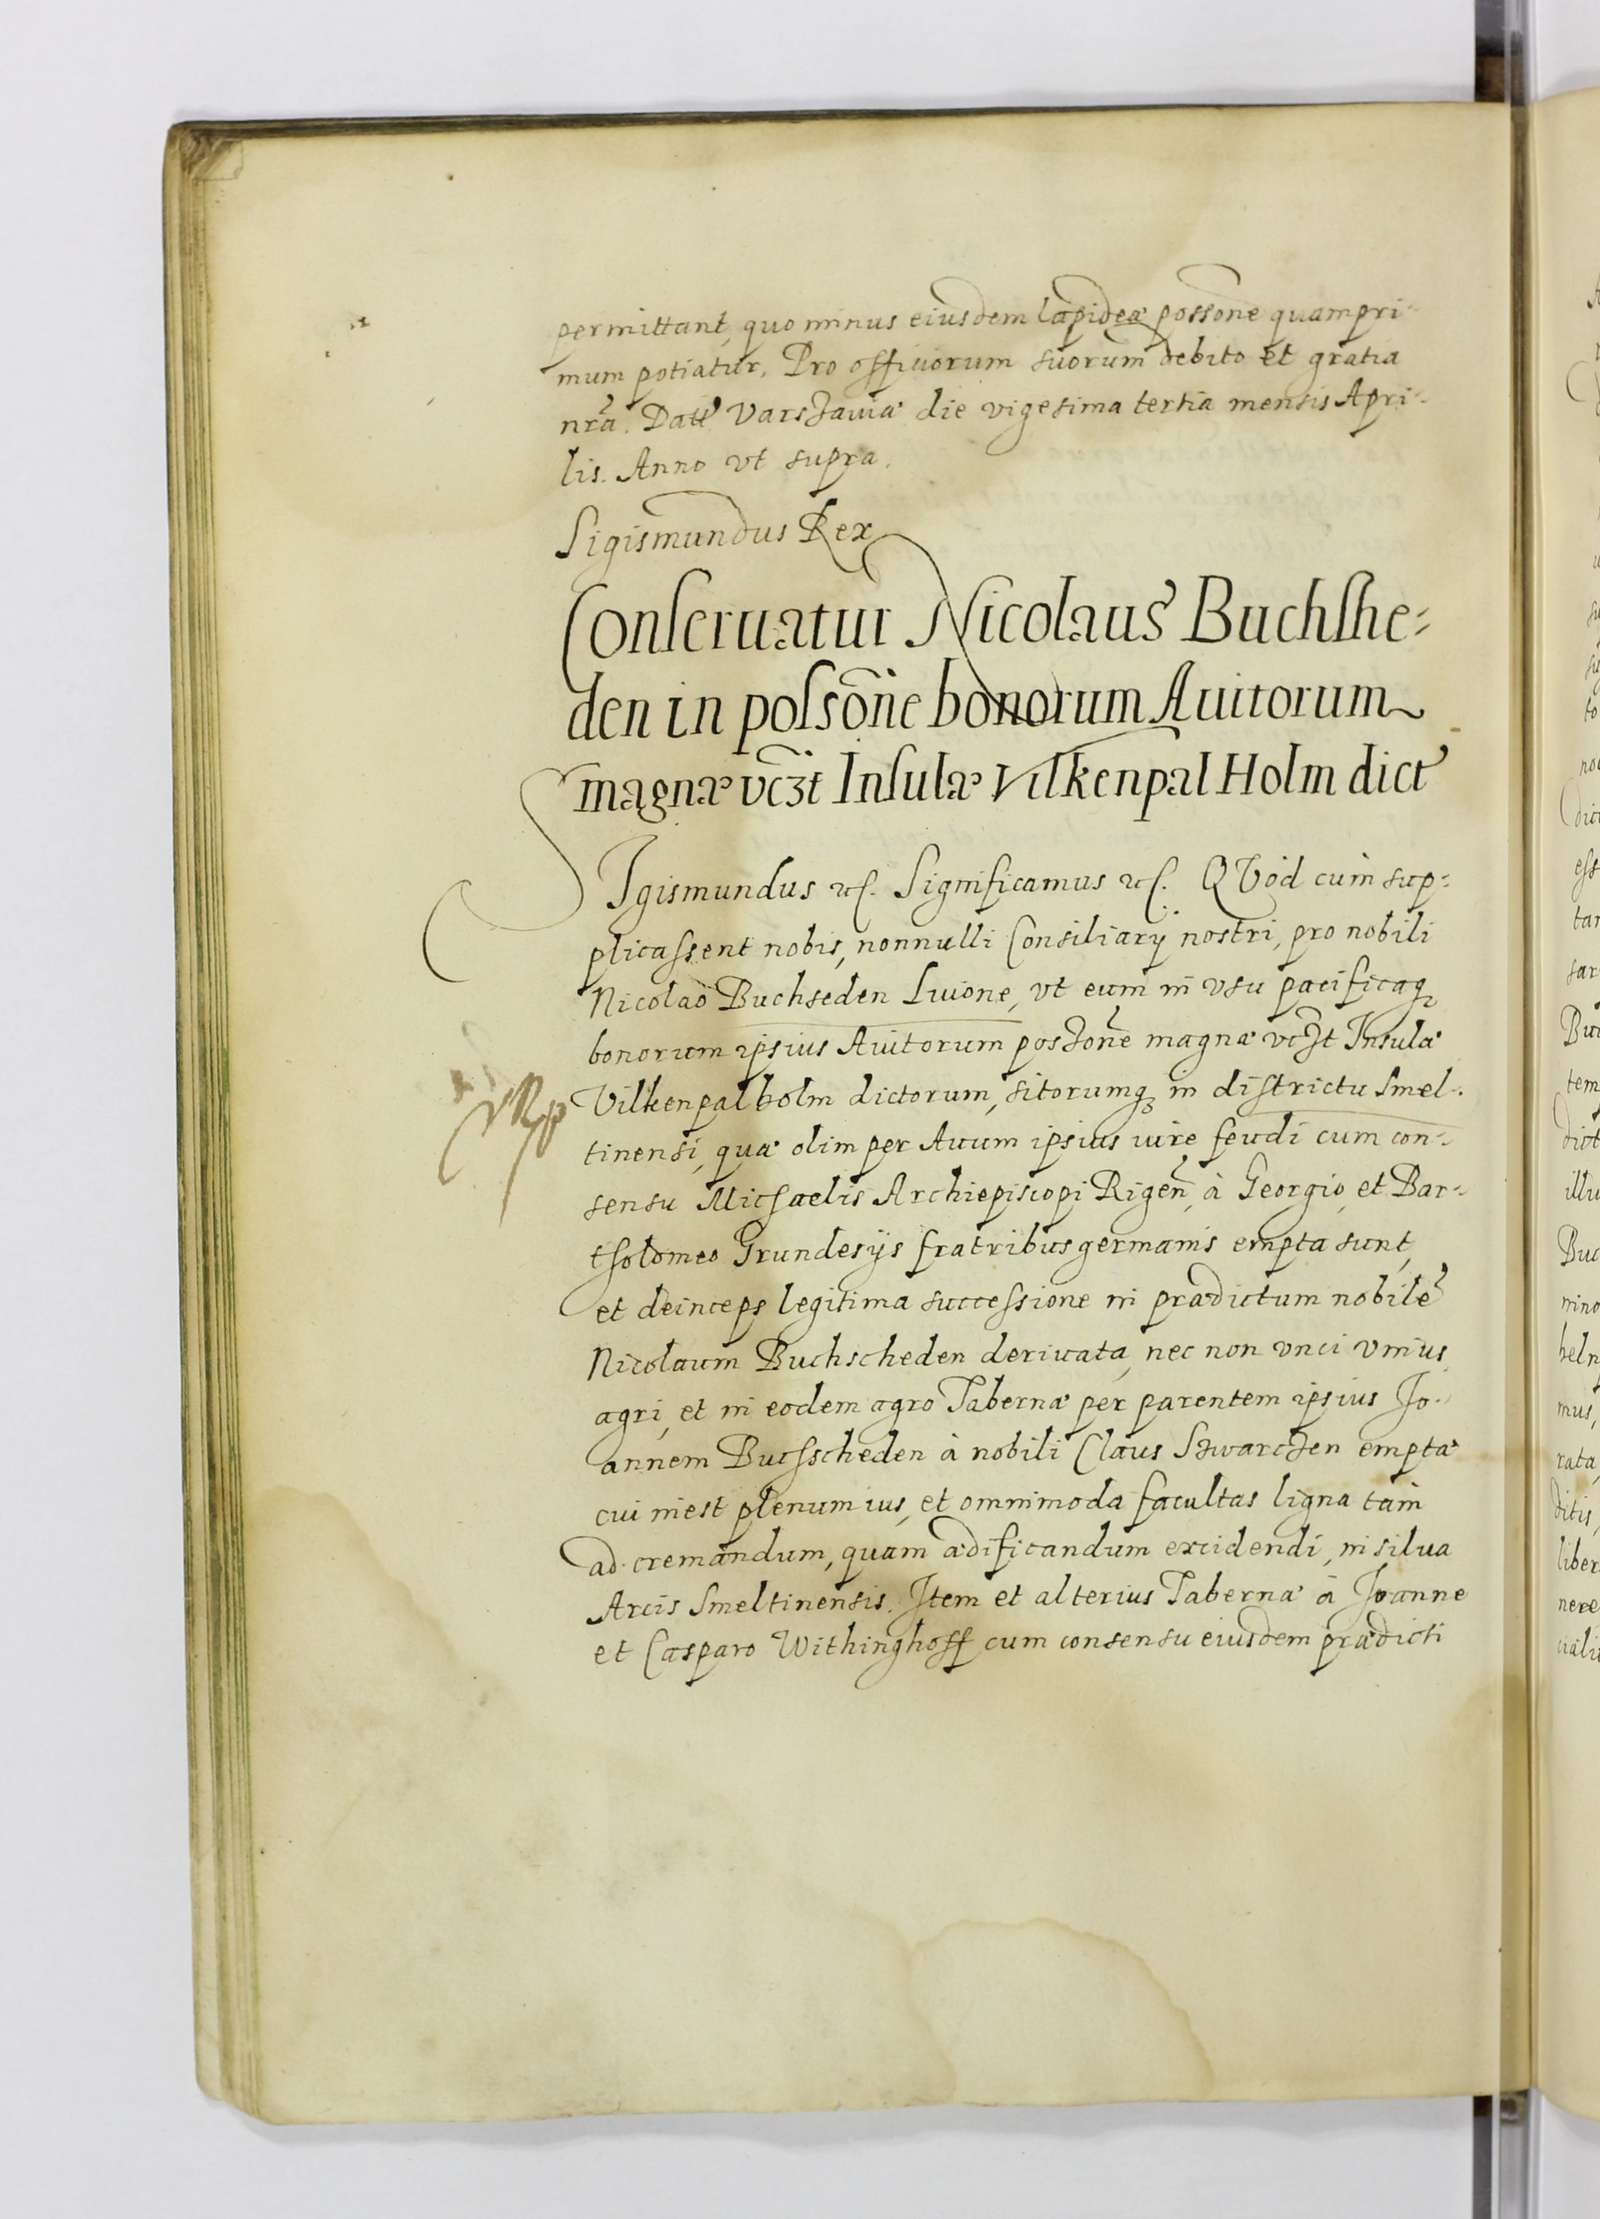 permittant, quo minus eiusdem lapideæ possone quampri-
mum potiatur. Pro officiorum suorum debito et gratia
nrã. Dat Varszauiæ die vigesima tertia mensis Apri-
lis. Anno vt supra.
Sigismundus Rex
Conseruatur Nicolaus Buchshe-
den in possone bonorum Auitorum
magnæ vczt Insulæ Vilkenpal Holm dict
SIgismundus etc. Significamus etc. QVod cum sup-
plicassent nobis, nonnulli Consiliarij nostri, pro nobili
Nicolao Buchseden Liuone, vt eum in vsu pacificaq
bonorum ipsius Auitorum poszone magnæ vczt Insulæ
Vilkenpalholm dictorum, sitorumq in districtu Smel-
tinensi, quæ olim per Auum ipsius iure feudi cum con-
sensu Michaelis Archiepiscopi Rigen, à Georgio, et Bar-
tholomeo Grundesijs fratribus germanis empta sunt,
et deinceps legitima successione in prædictum nobile
Nicolaum Buchscheden deriuata, nec non vnci vnius
agri, et in eodem agro Tabernæ per parentem ipsius Jo-
annem Buchscheden à nobili Claus Szwarczen emptæ
cui inest plenum ius, et omnimoda facultas ligna tam
ad cremandum, quam ædificandum excidendi, in silua
Arcis Smeltinensis. Item et alterius Tabernæ à Joanne
et Casparo Withinghoff cum consensu eiusdem prædicti